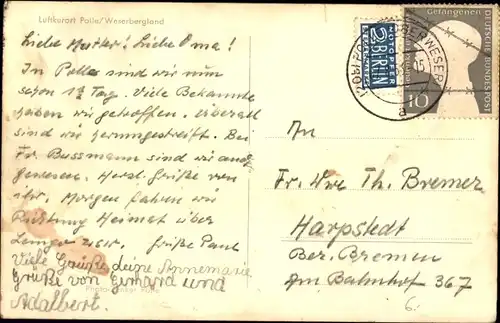 Luftkurort Polle/Weserbergland
Liebe Mutter! Liebe Oma!
In Polle sind wir nun
schon 1½ Tag. Viele Bekannte
haben wir getroffen. Überall
sind wir herumgestreift. Bei
Fr. Bussmann sind wir auch
gewesen. Herzl. Grüße von
ihr. Morgen fahren wir
Richtung Heimat über
Lemgo usw. Grüße Paul
Viele Grüße deine Annemarie
Grüße von Gerhard und
Adalbert.
NOTOPFER
2 BERLIN
STEUERMARKE
OBERWESER
a
Gefangenen
DEUTSCHE BUNDESPOST
10
An
Fr. Wwe Th. Bremer
Harpstedt
Bez. Bremen
Am Bahnhof 367
6.